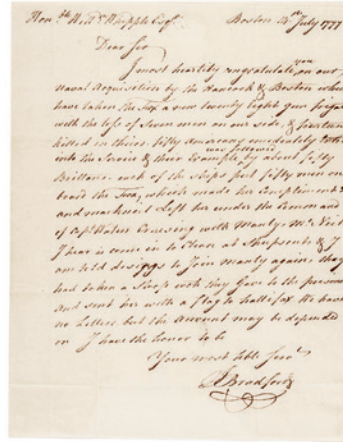 Hon.ble Will.m Whipple Esq.r Boston July 1777
Dear Sir
I most heartily congratulate you on our
Naval Acquisition by the Hancock & Boston who
have taken the Fox a new twenty Eight gun frigate
with the loss of Seven men on our side, & fourteen
killed in theirs. fifty Americans immediately
into the Service & their Example, was followed by about fifty
Brittons each of the ships put fifty men on
board the Fox, which made her Compliment
and Left her under the Command
of Cap.t Waters Cruising with Manly. Mc Neil
I hear is come in to Clean at Sheepscute & I
am told designs to Join Manly again. they
had taken a Sloop with they Gave to the prisoners
and sent her with a flag to Hallifax We have
no Letters. but the Account may be depended
on I have the honor to be
Your most Serv.t
J Bradford